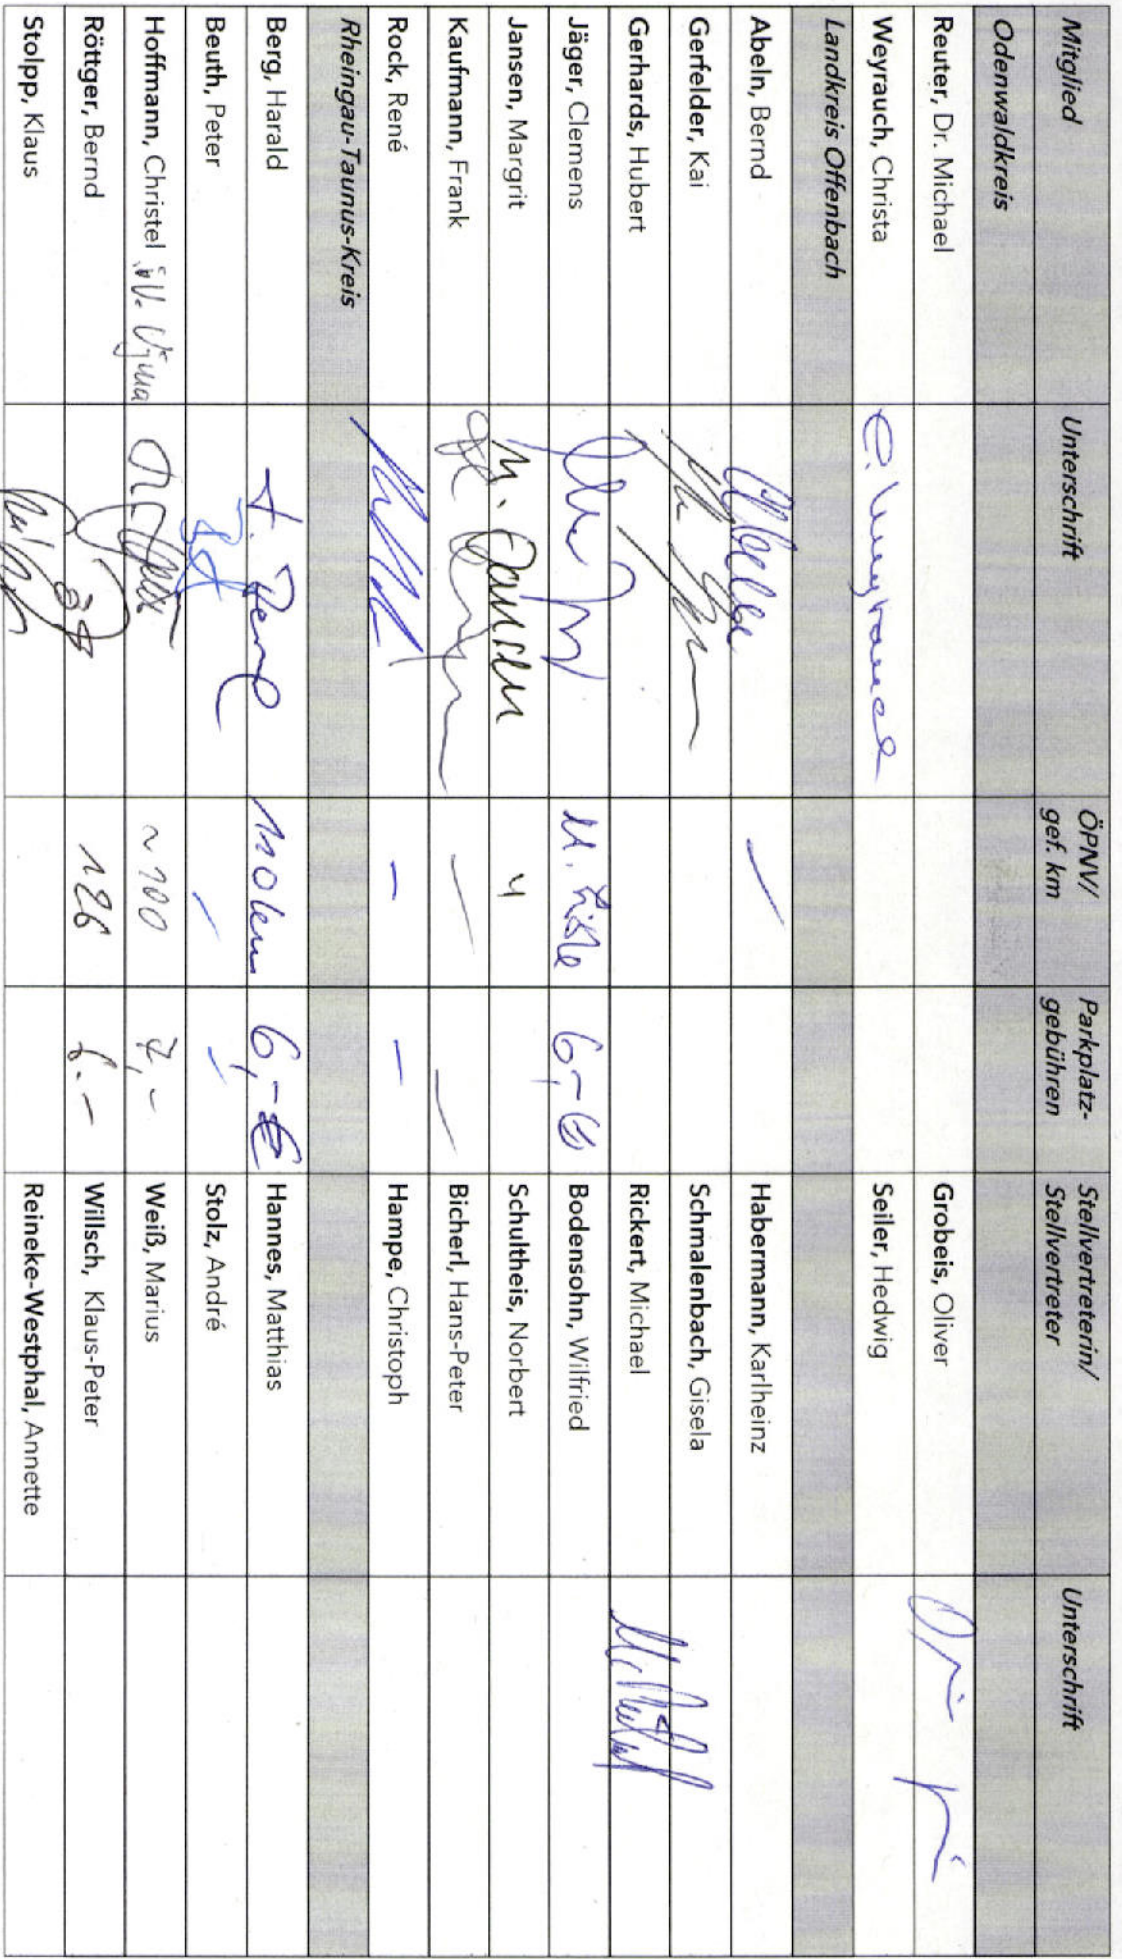 Mitglied Unterschrift ÖPNV/ gef. km Parkplatz- gebühren Stellvertreterin/ Stellvertreter Unterschrift
Odenwaldkreis
Reuter, Dr. Michael Grobeis, Oliver
Weyrauch, Christa C. Weyrauch Seiler, Hedwig
Landkreis Offenbach
Abeln, Bernd Habermann, Karlheinz
Gerfelder, Kai Schmalenbach, Gisela
Gerhards, Hubert Rickert, Michael
Jäger, Clemens 6,- Bodensohn, Wilfried
Jansen, Margrit M. Jansen 4 Schultheis, Norbert
Kaufmann, Frank Bicherl, Hans-Peter
Rock, René – – Hampe, Christoph
Rheingau-Taunus-Kreis
Berg, Harald 110 km 6,-€ Hannes, Matthias
Beuth, Peter – – Stolz, André
Hoffmann, Christel i.V. ~100 7,- Weiß, Marius
Röttger, Bernd 126 6.- Willsch, Klaus-Peter
Stolpp, Klaus Reineke-Westphal, Annette